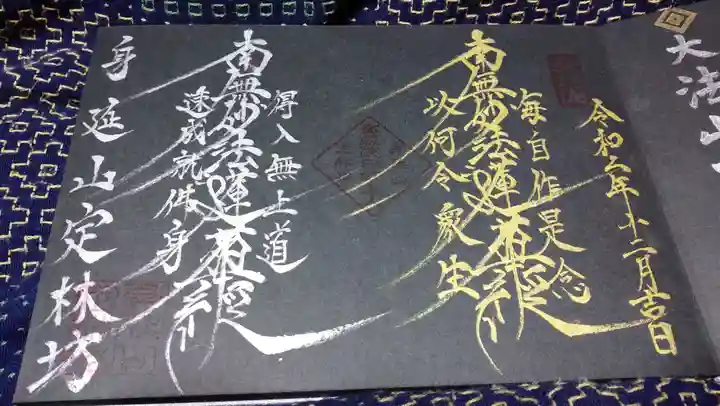 大法山
令和六年十二月吉日
毎自作是念
南無妙法蓮華経
以何令衆生
得入無上道
南無妙法蓮華経
速成就佛身
身延山定林坊